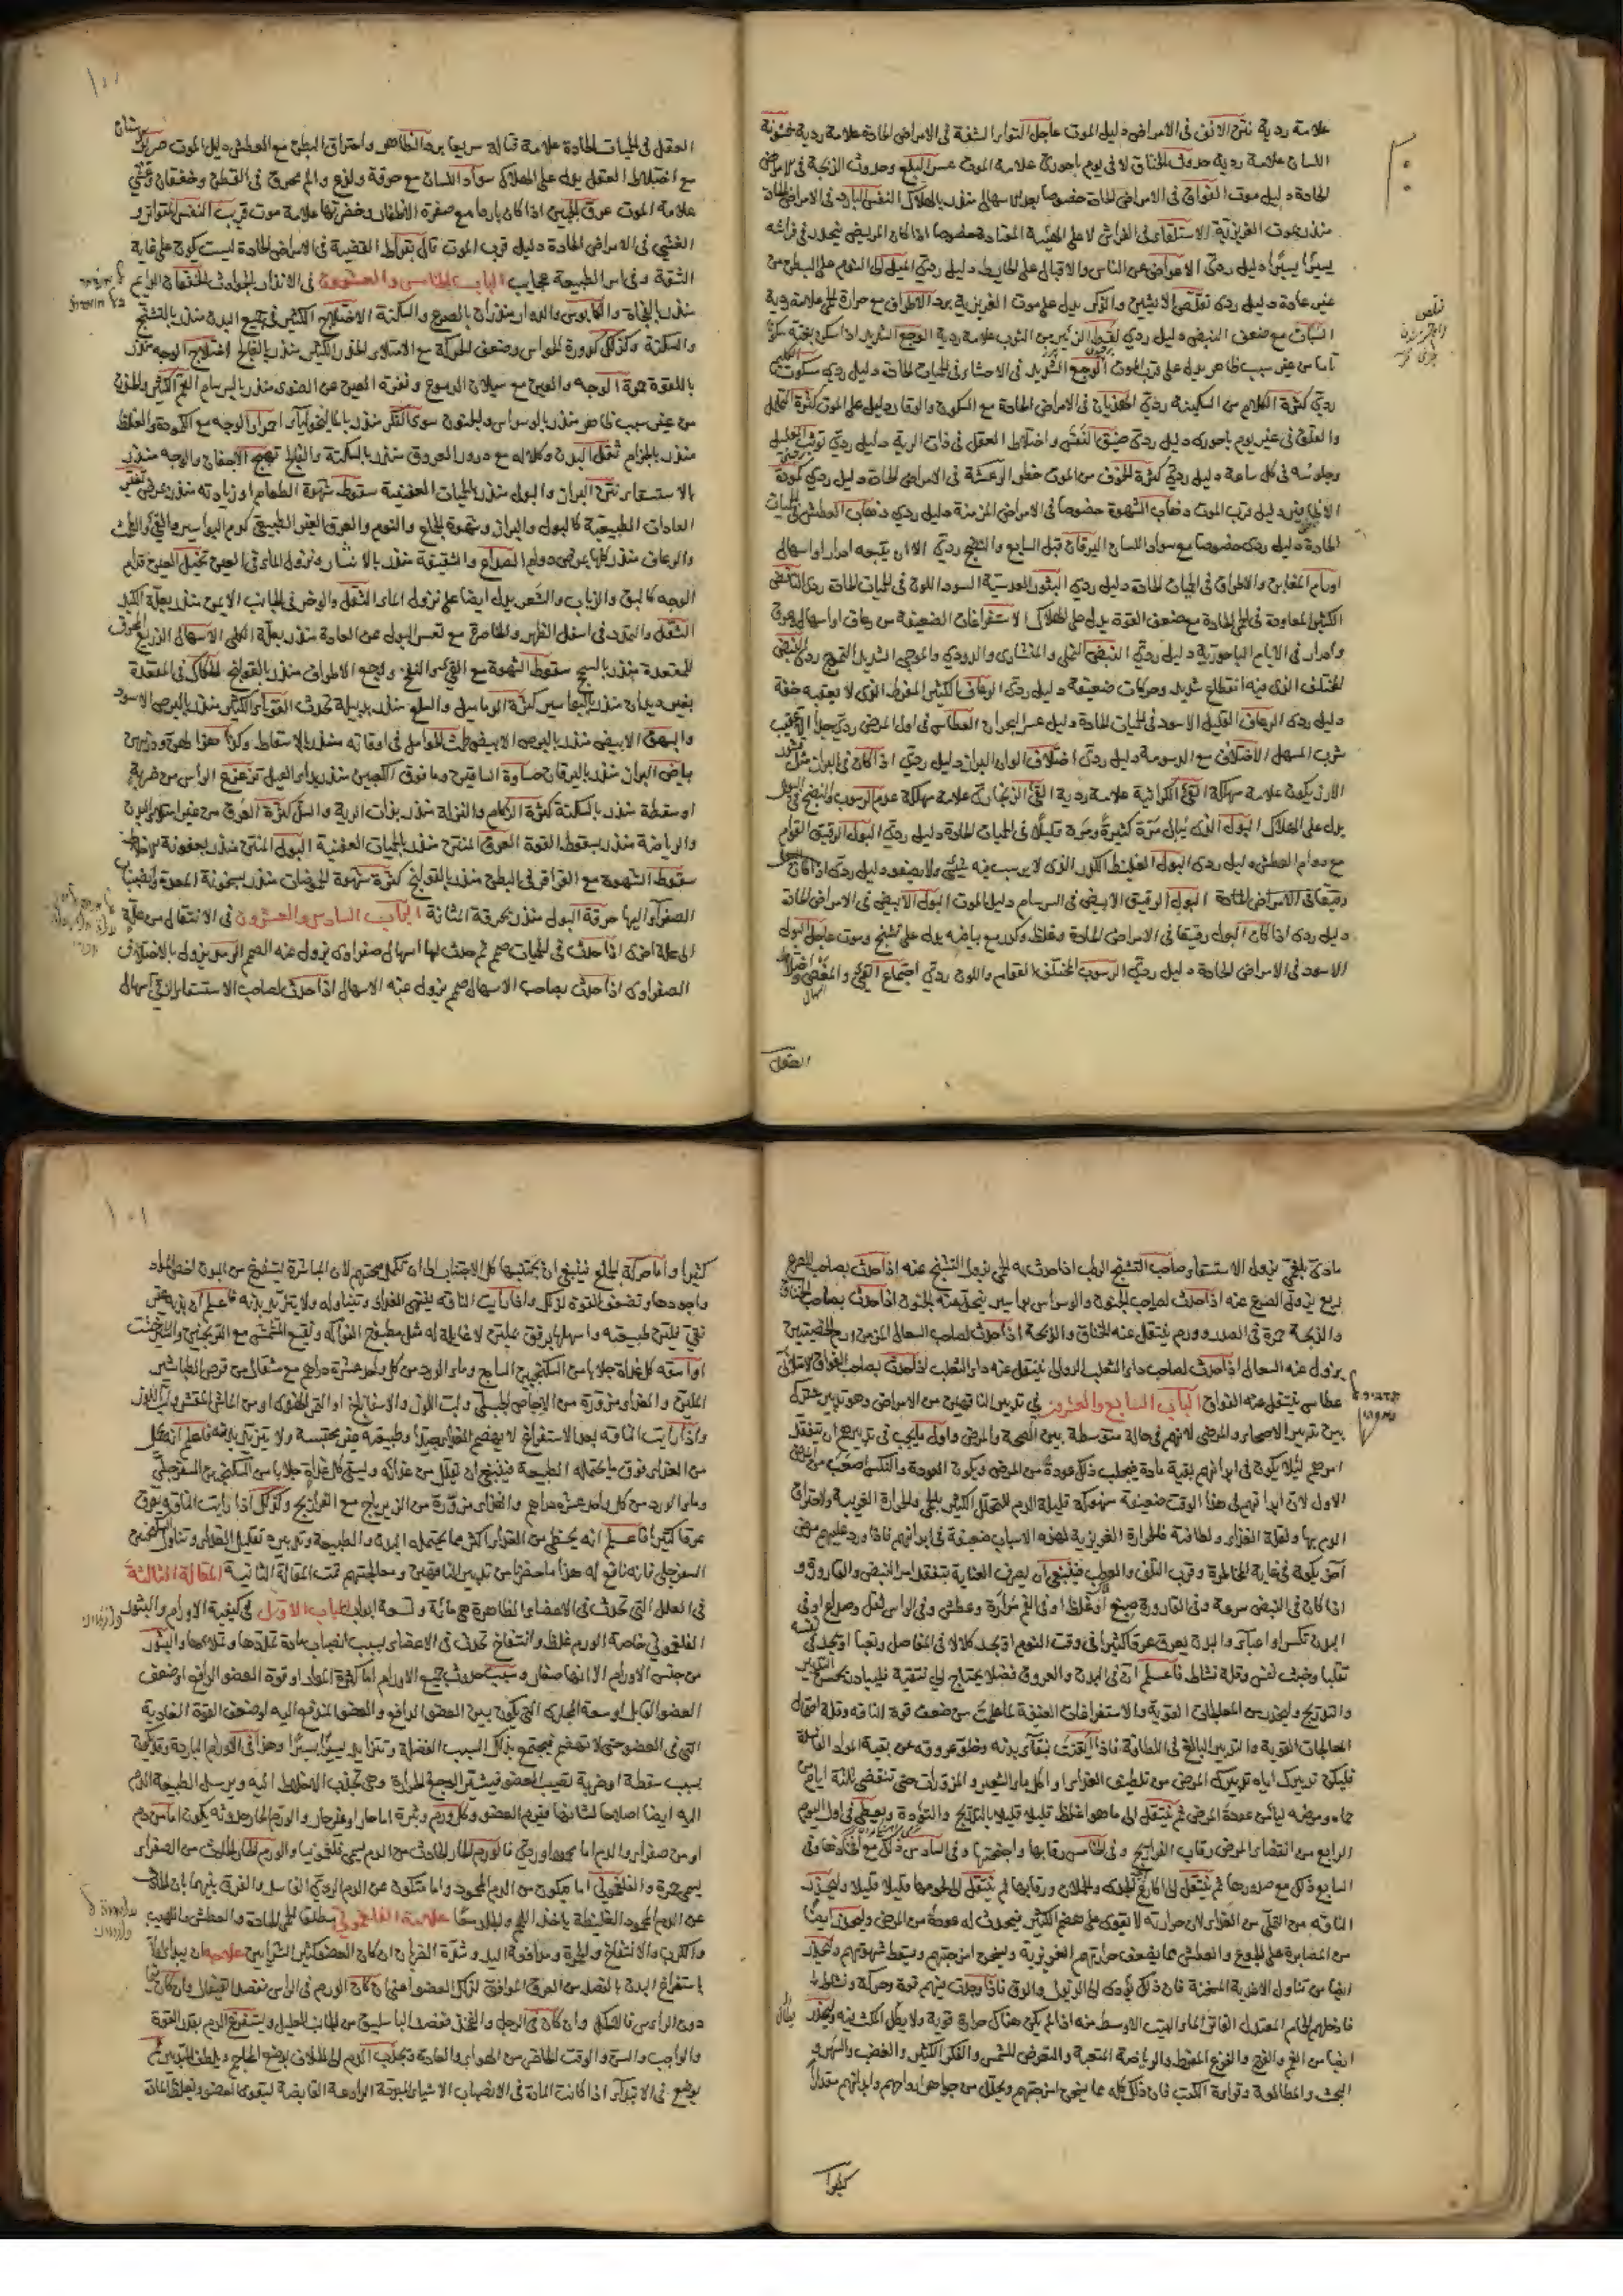 علامة ردية نتن الانف فى الامراض دليل الموت عاجل التواء الشفة فى الامراض الحادة علامة ردية خشونة
اللسان علامة ردية حدوث الخناق لا فى يوم باحورى علامة الموت عسر البلع وحدوث الذبحة فى الامراض
الحادة دليل موت الفواق فى الامراض الحادة خصوصا بعد الاسهال منذر بالهلاك النفس البارد فى الامراض الحادة
منذر بموت الغريزية الاستلقاء فى الفراش لا على الهيئة المعتادة خصوصا اذا كان المريض ينحدر فى فراشه
يسيرا يسيرا دليل ردى الاعراض عن الناس والاقبال على الحايط دليل ردى الميل الى النوم على البطن من
غير عادة دليل ردى تقلص الانثيين والذكر يدل على موت الغريزية برد الاطراف مع حرارة الحمى علامة ردية
السبات مع ضعف النبض دليل ردى لقط الزئبر من الثوب علامة ردية الوجع الشديد اذا سكن بغتة سكونا
تاما من غير سبب ظاهر يدل على قرب الموت الوجع الشديد فى الاحشاء فى الحميات الحادة دليل ردى سكوت
ردى كثرة الكلام من السكينة ردى الهذيان فى الامراض الحادة مع السكون والوقار دليل على الموت كثرة التململ
والقلق فى غير يوم باحورى دليل ردى ضيق النفس واختلاط العقل فى ذات الرية دليل ردى توثب العليل
وجلوسه فى كل ساعة دليل ردى كثرة الخوف من الموت خطر الرعشة فى الامراض الحادة دليل ردى كمودة
الاظافير دليل قرب الموت ذهاب الشهوة خصوصا فى الامراض المزمنة دليل ردى ذهاب العطش فى الحميات
الحادة دليل ردى خصوصا مع سواد اللسان اليرقان قبل السابع والتشنج ردى الا ان يتبعه ادرار او اسهال
اورام المغابن والاطراف فى الحميات الحادة دليل ردى البثور العدسية السود اللون فى الحميات الحادة ردى النافض
الكثير المعاودة فى الحمى الحادة مع ضعف القوة يدل على الهلاك الاستفراغات الضعيفة من رعاف او اسهال وعرق
وادرار فى الايام الباحورية دليل ردى النبض النملى والمنشارى والدودى والموجى الشديد التموج ردى النبض
المختلف الذى فيه انقطاع شديد وحركات ضعيفة دليل ردى الرعاف الكثير المفرط الذى لا يعقبه خفة
دليل ردى الرعاف القليل الاسود فى الحميات الحادة دليل عسر البحران العطاس فى اول المرض ردى جدا
شرب المسهل الاختلاف مع الدسومة دليل ردى اختلاف الوان البراز دليل ردى اذا كان فى البراز مثل قشور
الارز يكون علامة مهلكة القئ الكراثية علامة ردية القئ الزنجارى علامة مهلكة عدم الرسوب والنضج فى البول
يدل على الهلاك البول الذى يبال مرة كثيرة ومرة قليلا فى الحميات الحادة دليل ردى البول الرقيق القوام
مع دوام العطش دليل ردى البول الغليظ الكدر الذى لا يرسب فيه شئ ولا يصفو دليل ردى اذا كان
رقيقا فى الامراض الحادة البول الرقيق الابيض فى السرسام دليل الموت البول الابيض فى الامراض الحادة
دليل ردى اذا كان البول رقيقا فى الامراض الحادة وغلظ وكدر مع بياضه يدل على تشنج وموت عاجل البول
الاسود فى الامراض الحادة دليل ردى الرسوب المختلف القوام واللون ردى اجتماع القئ والمغص واختلاط
العقل
العقل فى الحميات الحادة علامة قتالة سريعا برد الظاهر واحتراق البطن مع العطش دليل الموت
مع اختلاط العقل يدل على الهلاك سواد اللسان مع حرقة ولذع والم محرق فى القطن وخفقان وغشى
علامة الموت عرق الجبين اذا كان باردا مع صفرة الاظفار وخضرتها علامة موت قريب النفس المتواتر و
الغشى فى الامراض الحادة دليل قرب الموت قال بقراط القضية فى الامراض الحادة ليست تكون على غاية
الثقة وفى اس الطبيعة عجايب الباب الخامس والعشرون فى الانذار بالحوادث الخفقان الدايم
منذر بالفجاة والكابوس والدوار منذران بالصرع والسكتة الاختلاج الكثير فى جميع البدن منذر بالتشنج
والسكتة وكذلك كدورة الحواس وضعف الحركة مع الامتلاء الخدر الكثير منذر بالفالج اختلاج الوجه منذر
باللقوة حمرة الوجه والعين مع سيلان الدموع ونفرة العين عن الضوء منذر بالبرسام الغم الكثير والحزن
من غير سبب ظاهر منذر بالوسواس والجنون سوى الفكر منذر بالماليخوليا احمرار الوجه مع الكمودة والغلظ
منذر بالجذام ثقل البدن وكلاله مع درور العروق منذر بالسكتة والفالج تهيج الاجفان والوجه منذر
بالاستسقاء نتن البراز والبول منذر بالحميات العفنية سقوط شهوة الطعام او زيادته منذر بمرض تغير
العادات الطبيعية كالبول والبراز وشهوة الجماع والنوم والعرق الغير الطبيعى كدم البواسير والقئ والطمث
والرعاف منذر كلها بمرض دوام الصداع والشقيقة منذر بالانتشار ونزول الماء فى العين تخيل العين قدام
الوجه كالبق والذباب والشعر يدل ايضا على نزول الماء الثقل والوخز فى الجانب الايمن منذر بعلة الكبد
الثقل والتمدد فى اسفل الظهر والخاصرة مع تغير البول عن العادة منذر بعلة الكلى الاسهال الذريع المحرق
للمقعدة منذر بالسحج سقوط الشهوة مع القئ والنفخ ووجع الاطراف منذر بالقولنج الحكاك فى المقعدة
بغير ديدان منذر بالبواسير كثرة الدماميل والسلع منذر بدبيلة تحدث القوباء الكثير منذر بالبرص الاسود
والبهق الابيض منذر بالبرص الابيض طمث الحوامل فى اوقاته منذر بالاسقاط
بياض البراز منذر باليرقان
او سقطة منذر بالسكتة كثرة الزكام والنزلة منذر بذات الرية والسل كثرة العرق من غير امتلاء البدن
والرياضة منذر بسقوط القوة العرق المنتن منذر بالحميات العفنية البول المنتن منذر بعفونة الاخلاط
سقوط الشهوة مع القراقر فى البطن منذر بالقولنج كثرة شهوة الحموضات منذر بسخونة المعدة وانصباب
الصفراء اليها حرقة البول منذر بحرقة المثانة الباب السادس والعشرون فى الانتقال من علة
الى علة اخرى اذا حدث فى الحميات صمم ثم حدث لها اسهال صفراوى يزول عنه الصمم الردى يزول بالاختلاف
الصفراوى اذا حدث بصاحب الاسهال صمم يزول عنه الاسهال اذا حدث لصاحب الاستسقاء الزقى اسهال
مادى بلغمى يزول الاستسقاء وصاحب التشنج الرطب اذا حدث به الحمى يزول التشنج عنه اذا حدث بصاحب الصرع
ربع يزول الصرع عنه اذا حدث لصاحب الجنون والوسواس بواسير ينحل عنه الجنون اذا حدث بصاحب الخناق
والذبحة حمرة فى الصدر وورم ينتقل عنه الخناق والذبحة اذا حدث لصاحب السعال المزمن ورم الخصيتين
يزول عنه السعال اذا حدث لصاحب داء الثعلب الدوالى ينتقل عنه داء الثعلب اذا حدث بصاحب الفواق الامتلائى
عطاس ينتقل عنه الفواق الباب السابع والعشرون فى تدبير الناقهين من الامراض وهو تدبير مشترك
بين تدبير الاصحاء والمرضى لانهم فى حالة متوسطة بين الصحة والمرض واول ما يجب فى تدبيرهم ان يتفقد
امرهم لئلا يكون فى ابدانهم بقية مادة فيجلب ذلك عودة من المرض ويكون العودة والنكس اصعب من المرض
الاول لان ابدانهم فى هذا الوقت ضعيفة منهوكة قليلة الدم للتحلل الكثير بالحمى والحرارة الغريبة ولاحتراق
الدم بها ولقلة الغذاء ولطافته فالحرارة الغريزية لهذه الاسباب ضعيفة فى ابدانهم فاذا ورد عليهم مرض
اخر يكونه فى غاية المخاطرة وقرب التلف والعطب فينبغى ان يصرف العناية بتفقد امر النبض والقارورة و
اذا كان فى النبض سرعة وفى القارورة صبغ او غلظ او فى الفم مرارة وعطش وفى الراس ثقل وصداع او فى
البدن تكسر او اعياء والبدن يعرق عرقا كثيرا فى وقت النوم او يجد كلالا فى المفاصل وتعبا او يجد فى نفسه
تقلبا وخبث نفس وقلة نشاط فاعلم ان فى البدن والعروق فضلا يحتاج الى تنقية فليبادر بحسن التدبير
والتدريج وليحذر من المعالجات القوية والاستفراغات العنيفة لما علمت من ضعف قوة الناقه وقلة احتمال
العلاجات القوية والتدبير البالغ فى اللطافة فاذا ايقنت بنقاء بدنه وخلو عروقه عن بقية المواد الفاسدة
فليكن تدبيرك اياه تدبيرك المرضى من تلطيف الغذاء واكل ماء الشعير والمزورات حتى تنقضى ثلثة ايام
الرابع من انقضاء المرض رقاب الفراريج وفى الخامس رقابها واجنحتها وفى السادس ذلك مع
السابع ذلك مع صدورها ثم ينتقل الى اكارع الجداء والحملان ورقابها ثم ينتقل الى لحومها قليلا قليلا وليحذر
الناقه من التملى من الغذاء لان حرارته لا تقوى على هضم الكثير فيحدث له عودة من المرض وليحذر ايضا
من المصابرة على الجوع والعطش مما يضعف حرارتهم الغريزية ويسخن امزجتهم ويسقط شهوتهم وليحذر
ايضا من تناول الاغذية المسخنة فان ذلك يؤدى الى الذبول والدق فاذا وجدت منهم قوة وحركة ونشاطا
فادخلهم الحمام المعتدل الفاتر الماء البيت الاوسط منه اذا لم يكن هناك حرارة قوية ولا يطل المكث فيه وليحذر
ايضا من الغم والفزع المفرط والرياضة المتعبة والتعرض للشمس والفكر الكثير والغضب والسهر و
البحث والمطالعة وقراءة الكتب فان ذلك كله مما يسخن امزجتهم ويحلل من جواهر ارواحهم وابدانهم مقدارا
كثيرا
كثيرا واما حركة الجماع فينبغى ان يجتنبها كل الاجتناب الى ان تكمل صحتهم لان المباشرة يستفرغ من البدن اخص المواد
واجودها وتضعف القوة لذلك واذا رايت الناقه يشتهى الغذاء ويتناوله ولا يتزيد بدنه فاعلم ان بدنه غير
نقى فلين طبيعته واسهلها برفق بملين لا غايلة له مثل مطبوخ الفواكه ونقيع المشمش مع الترنجبين والشيرخشت
او اسقه كل غداة جلابا من السكنجبين الساذج وماء الورد من كل واحد عشرة دراهم مع مثقال من قرص الطباشير
الملين والغذاء مزورة من الاجاص الجبلى ولب اللوز والاسفاناخ او التمر الهندى او من الماش المقشر ولب اللوز
واذا رايت الناقه بعد الاستفراغ لا يهضم الغذاء جيدا وطبيعته غير محتبسة ولا يتزيد بدنه فاعلم انه ياكل
من الغذاء فوق ما يحتمله الطبيعة فينبغى ان تقلل من غذائه ويسقى كل غداة جلابا من السكنجبين السفرجلى
وماء الورد من كل واحد عشرة دراهم والغذاء مزورة من الزيرباج مع الفراريج وكذلك اذا رايت الناقه يعرق
عرقا كثيرا فاعلم انه يحتظى من الغذاء اكثر مما يحتمله البدن والطبيعة وتدبيره تقليل الغذاء وتناول السكنجبين
السفرجلى فانه نافع له هذا ما حضرنا من تدبير الناقهين ومعالجتهم تمت المقالة الثانية المقالة الثالثة
فى العلل التى تحدث فى الاعضاء الظاهرة وهى مائة وتسعة ابواب الباب الاول فى كيفية الاورام والبثور
الفلغمونى خاصة الورم غلظ وانتفاخ تحدث فى الاعضاء بسبب انصباب مادة تملاها وتمددها والبثور
من جنس الاورام الا انها صغار وسبب حدوث جميع الاورام اما كثرة المواد او قوة العضو الدافع او ضعف
العضو القابل او سعة المجارى التى تكون بين العضو الدافع والعضو المندفع اليه او ضعف القوة الغاذية
التى فى العضو حتى لا تهضم فيجتمع بذلك السبب الفضلة وتتزايد يسيرا يسيرا وهذا فى الاورام الباردة وقد تكون
بسبب سقطة او ضربة تصيب العضو فيشتد الوجع الحرارة وهى تجذب الاخلاط اليه ويرسل الطبيعة الدم
اليه ايضا اصلاحا لشانها فيرم العضو وكل ورم وبثرة اما حار او غير حار والورم الحار حدوثه يكون اما من دم
او من صفراء والدم اما محمود او ردى فالورم الحار الحادث من الدم يسمى فلغمونيا والورم الحار الحادث من الصفراء
يسمى حمرة والفلغمونى اما يكون من الدم المحمود واما متكون عن الدم الردى
عن الدم المحمود الغليظة ياخذ اللحم والجلد معا علامة الفلغمونى مطلقا الحمى الحادة والعطش واللهيب
والكرب والانتفاخ والحمرة ومدافعة اليد وشدة الضربان ان كان العضو كثير الشرايين علاجه ان يبدا اولا
باستفراغ البدن بالفصد من العرق الموافق لذلك العضو اعنى ان كان الورم فى الراس نفصد القيفال وان كان
دون الراس فالاكحل وان كان فى الرجل والفخذ فصد الباسليق من الجانب العليل ويستفرغ الدم بقدر القوة
والواجب والسن والوقت الحاضر من الهواء والعادة وتجذب الدم الى الخلاف بوضع المحاجم ويلطف التدبير ثم
يوضع فى الابتداء اذا كانت المادة فى الانصباب الاشياء المبردة الرادعة القابضة ليقوى العضو